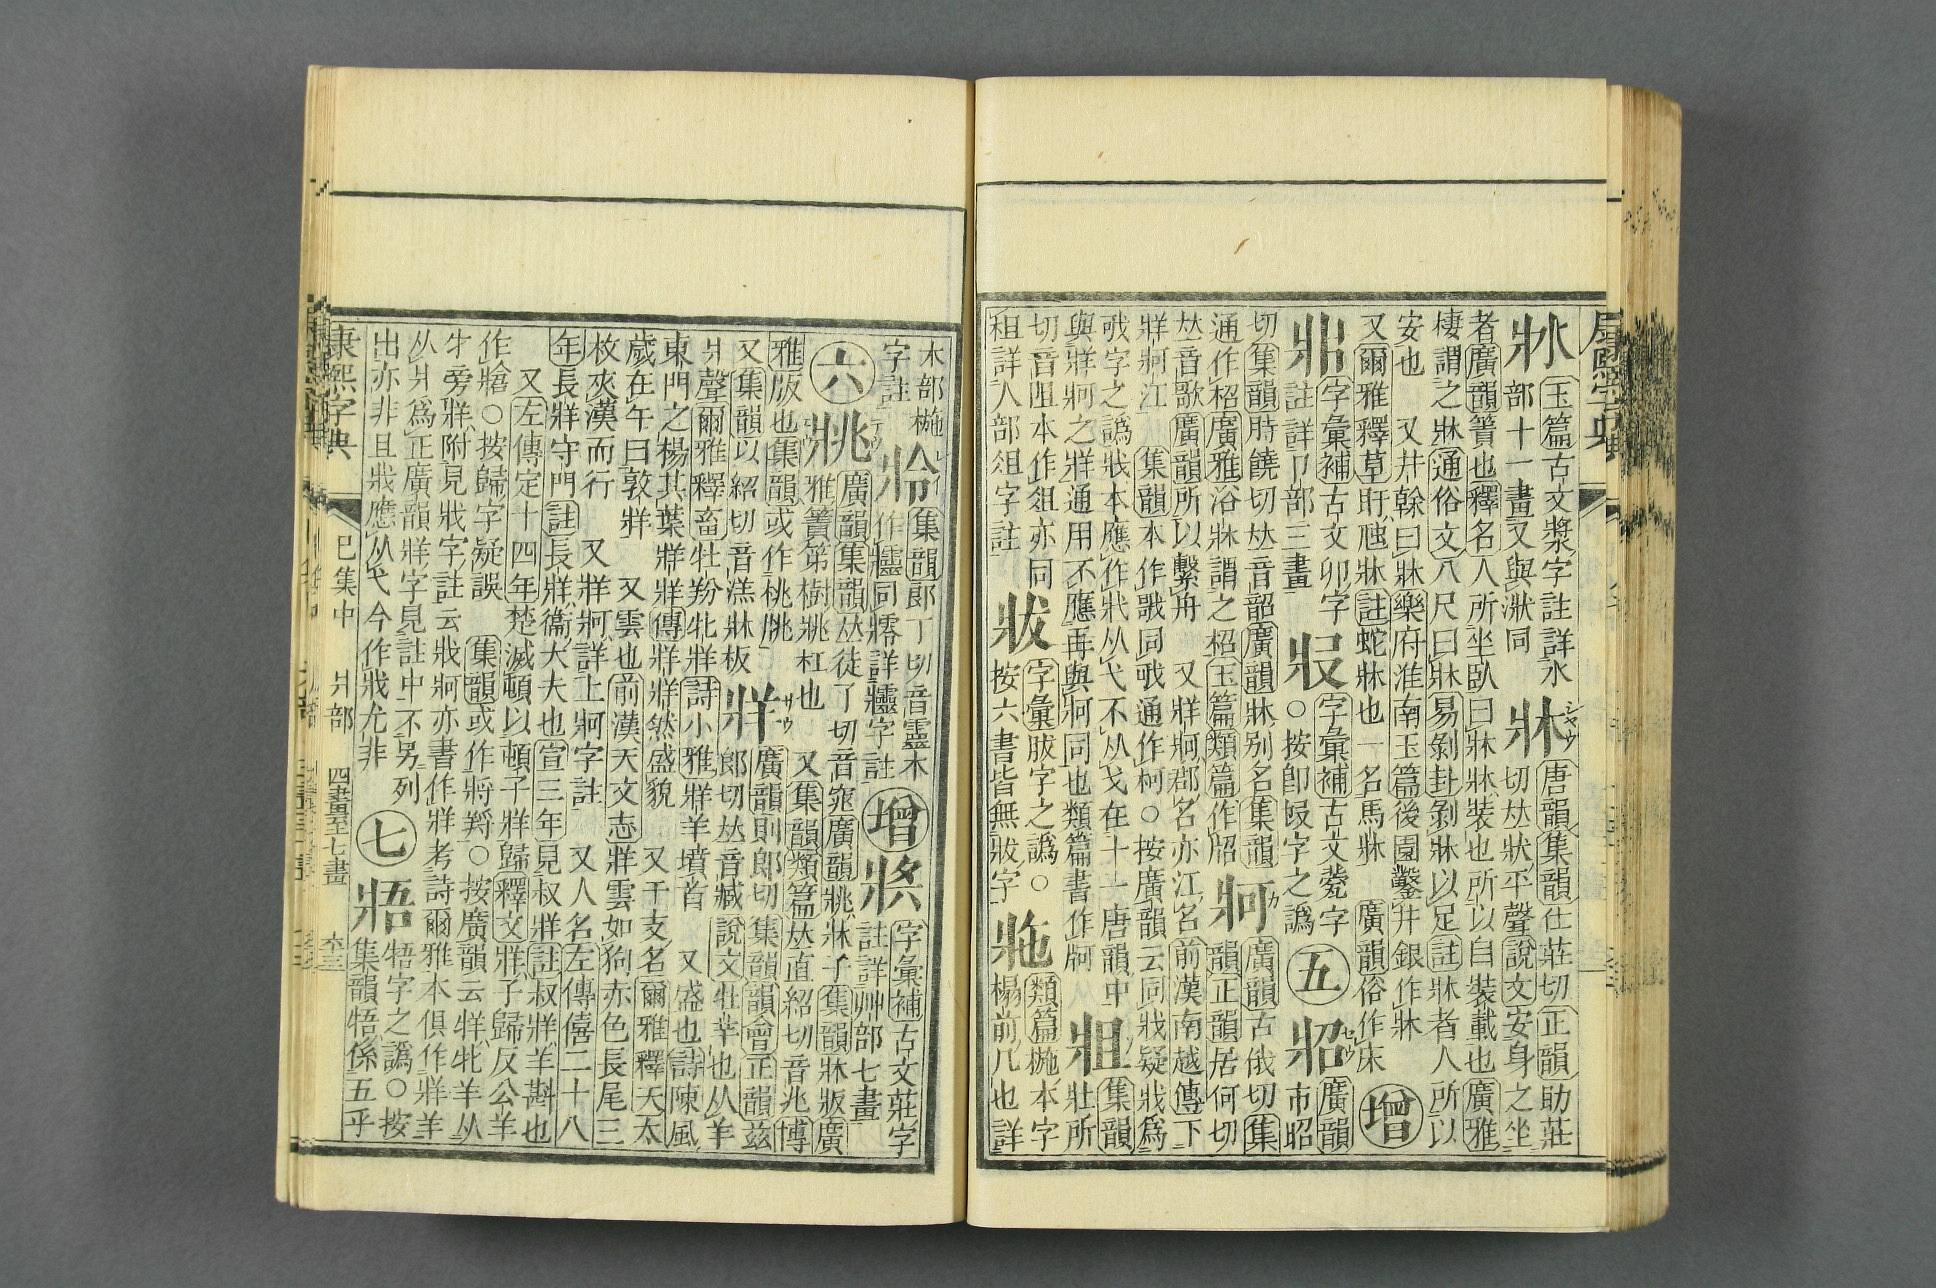 康熙字典
玉篇古文漿字註詳水 牀 唐韻集韻仕莊切正韻助莊
部十一畫又與同 切𠀤狀平聲說文安身之坐
者廣韻簀也釋名人所坐臥曰牀牀裝也所以自裝載也廣雅
棲謂之牀通俗文八尺曰牀易剝卦剝牀以足註牀者人所以
安也 又井榦曰牀樂府淮南王篇後園鑿井銀作牀
又爾雅釋草盱虺牀註蛇牀也一名馬牀 廣韻俗作床 增
字彙補古文卯字 字彙補古文甓字 五 牊 廣韻
註詳卩部三畫 ○按卽字之譌 市昭
切集韻時饒切𠀤音韶廣韻牀別名集韻 牁 廣韻古俄切集
通作柖廣雅浴牀謂之柖玉篇類篇作 韻正韻居何切
𠀤音歌廣韻所以繫舟 又牂牁郡名亦江名前漢南越傳下
牂牁江 集韻本作戨同戓通作柯○按廣韻云同戕疑戕爲
戓字之譌戕本應作戕从弋不从戈在十一唐韻中 集韻
與牂牁之牂通用不應再與牁同也類篇書作牱 壯所
切音阻本作俎亦同 字彙胈字之譌○ 類篇柂本字
柤詳人部俎字註 按六書皆無字 榻前几也詳
木部柂 集韻郎丁切音靈木 增 字彙補古文莊字
字註 作同詳字註 註詳艸部七畫
六 廣韻集韻𠀤徒了切音窕廣韻牀子集韻牀版廣
雅簀第樹杠也 又集韻類篇𠀤直紹切音兆博
雅版也集韻或作桃 牂 廣韻則郎切集韻韻會正韻茲
又集韻以紹切音𣻌牀板 郎切𠀤音臧說文牡羊也从羊
爿聲爾雅釋畜牡羒牝牂詩小雅牂羊墳首 又盛也詩陳風
東門之楊其葉牂牂傳牂牂然盛貌 又干支名爾雅釋天太
歲在午曰敦牂 又雲也前漢天文志牂雲如狗赤色長尾三
枚夾漢而行 又牂牁詳上牁字註 又人名左傳僖二十八
年長牂守門註長牂衞大夫也宣三年見叔牂註叔牂羊斟也
又左傳定十四年楚滅頓以頓子牂歸釋文牂子歸反公羊
作牄○按歸字疑誤 集韻或作將䍧○按廣韻云牂牝羊从
牛旁牂附見戕字註云戕牁亦書作牂考詩爾雅本俱作牂羊
从爿爲正廣韻牂字見註中不另列 牾字之譌○按
出亦非且戕應从弋今作戕尤非 七 集韻牾係五乎
康熙字典 巳集中 爿部 四畫至七畫